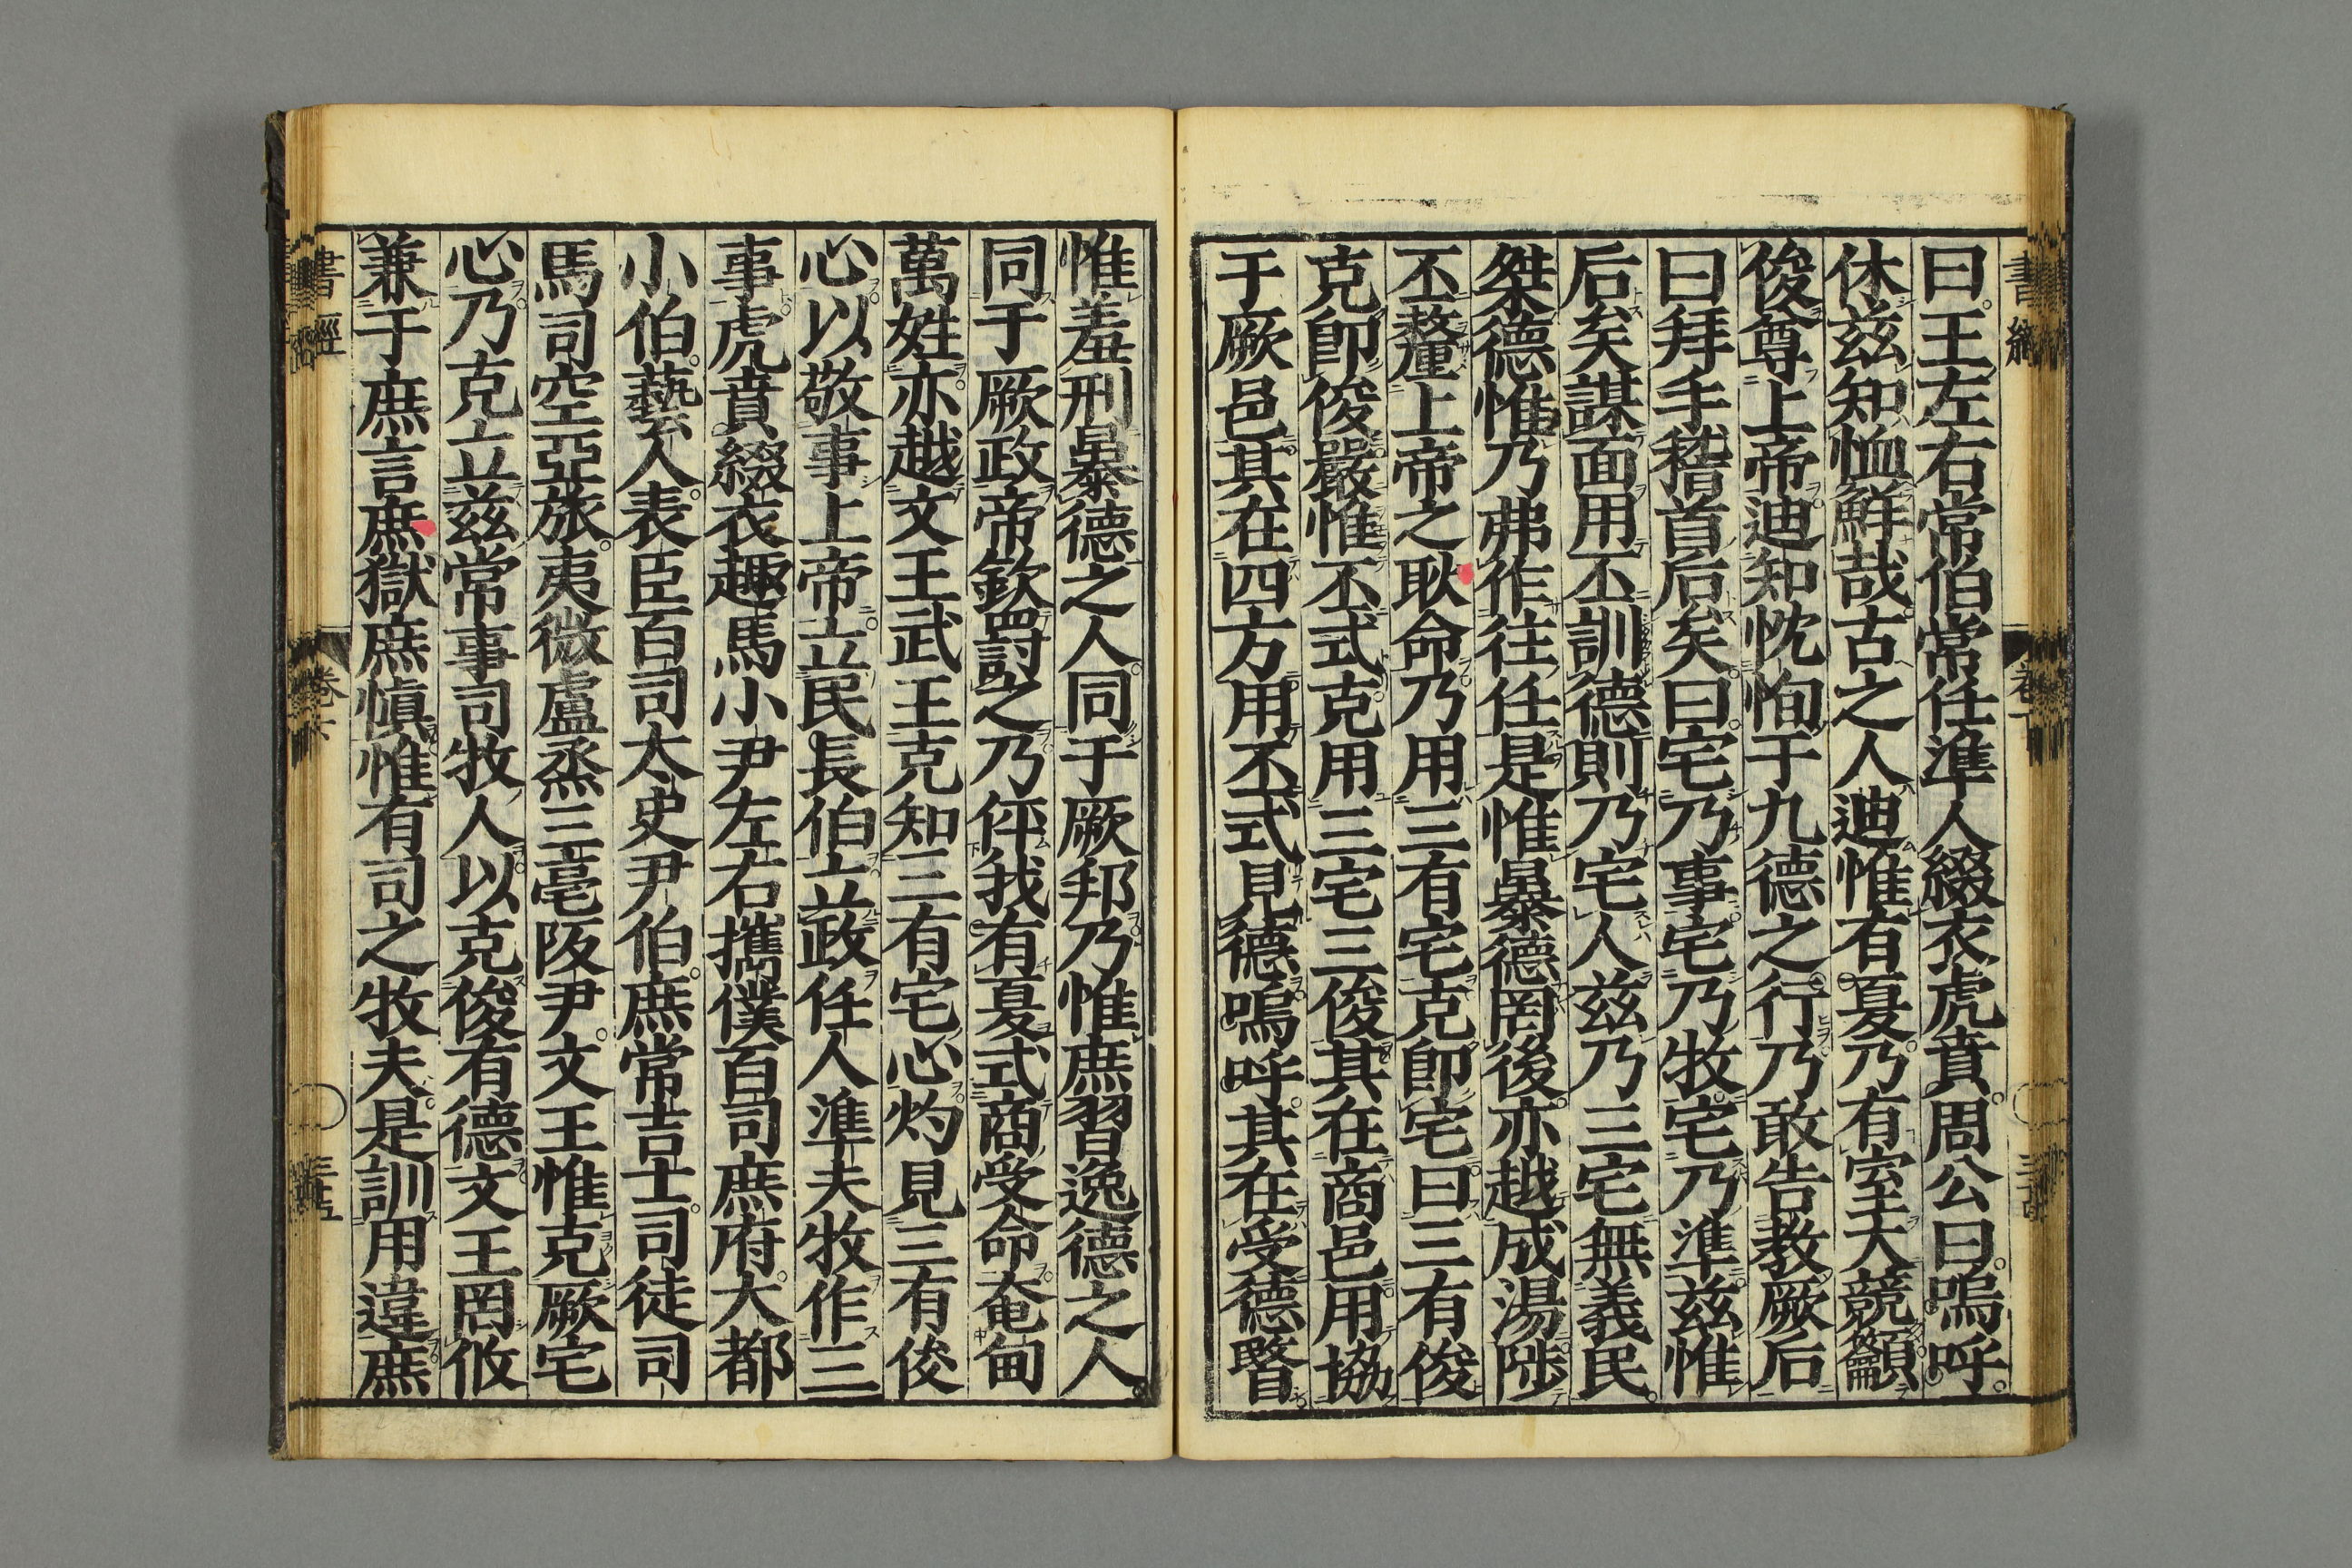 曰王左右常伯常任準人綴衣虎賁周公曰嗚呼
休茲知恤鮮哉古之人迪惟有夏乃有室大競籲
俊尊上帝迪知忱恂于九德之行乃敢告教厥后
曰拜手稽首后矣曰宅乃事宅乃牧宅乃準茲惟
后矣謀面用丕訓德則乃宅人茲乃三宅無義民
桀德惟乃弗作往任是惟暴德罔後亦越成湯陟
丕釐上帝之耿命乃用三有宅克即宅曰三有俊
克即俊嚴惟丕式克用三宅三俊其在商邑用協
于厥邑其在四方用丕式見德嗚呼其在受德暋
惟羞刑暴德之人同于厥邦乃惟庶習逸德之人
同于厥政帝欽罰之乃伻我有夏式商受命奄甸
萬姓亦越文王武王克知三有宅心灼見三有俊
心以敬事上帝立民長伯立政任人準夫牧作三
事虎賁綴衣趣馬小尹左右攜僕百司庶府大都
小伯藝人表臣百司太史尹伯庶常吉士司徒司
馬司空亞旅夷微盧烝三亳阪尹文王惟克厥宅
心乃克立茲常事司牧人以克俊有德文王罔攸
兼于庶言庶獄庶慎惟有司之牧夫是訓用違庶
書經
卷六